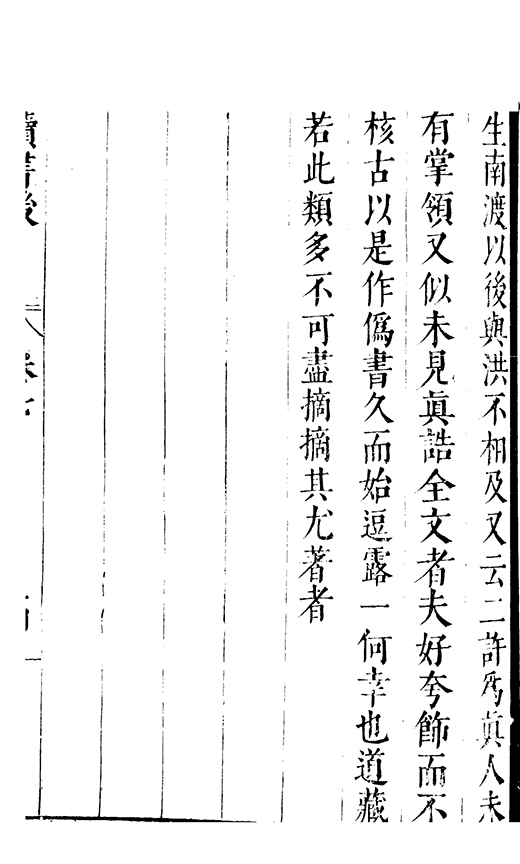 生南渡以後與洪不相及又云二許爲真人未
有掌領又似未見真誥全文者夫好夸飾而不
核古以是作僞書久而始逗露一何幸也道藏
若此類多不可盡摘摘其尤著者
讀書後
卷七